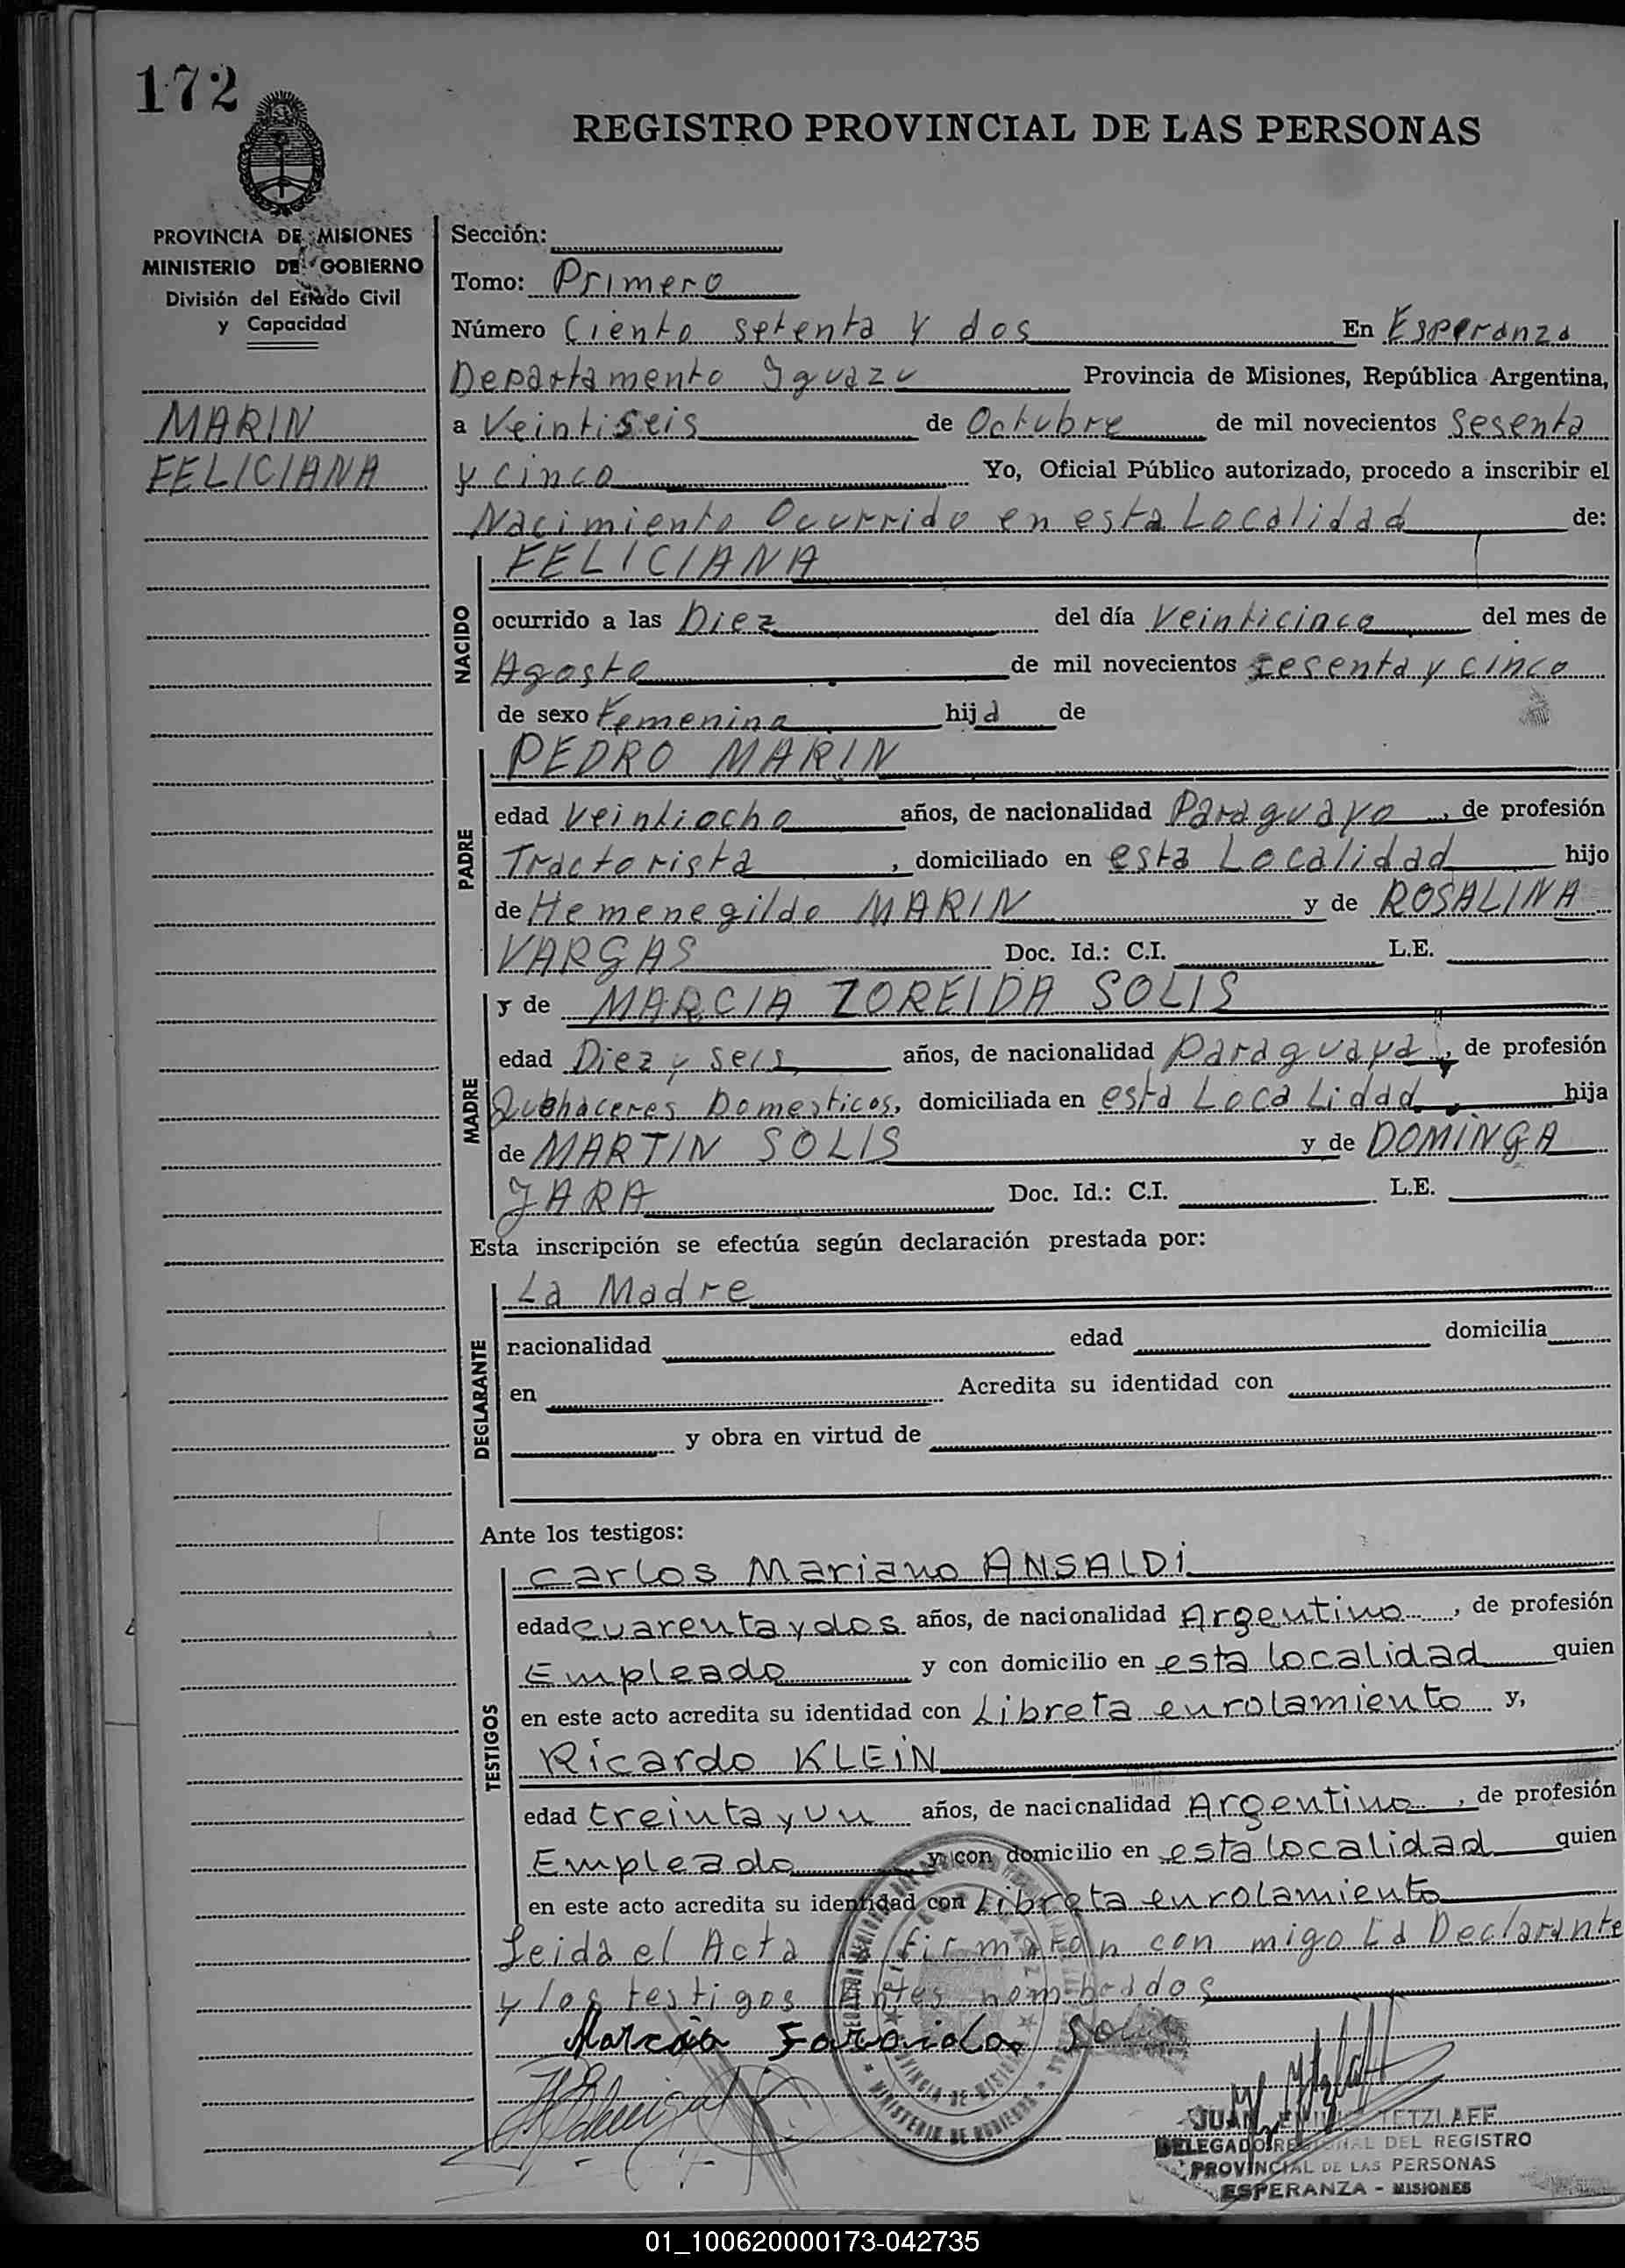 172
REGISTRO PROVINCIAL DE LAS PERSONAS
PROVINCIA DE MISIONES
MINISTERIO DE GOBIERNO
División del Estado Civil
y Capacidad
MARIN
FELICIANA
Sección:
Tomo: Primero
Número Ciento setenta y dos En Esperanza
Departamento Iguazu Provincia de Misiones, República Argentina,
a Veintiseis de Octubre de mil novecientos Sesenta
y cinco Yo, Oficial Público autorizado, procedo a inscribir el
Nacimiento Ocurrido en esta Localidad de:
NACIDO
FELICIANA
ocurrido a las Diez del día Veinticinco del mes de
Agosto de mil novecientos sesenta y cinco
de sexo Femenino hija de
PADRE
PEDRO MARIN
edad Veintiocho años, de nacionalidad Paraguayo, de profesión
Tractorista, domiciliado en esta Localidad hijo
de Hemenegildo MARIN y de ROSALINA
VARGAS Doc. Id.: C.I. L.E.
MADRE
y de MARCIA ZOREIDA SOLIS
edad Diez y seis años, de nacionalidad Paraguaya, de profesión
Quehaceres Domesticos, domiciliada en esta Localidad, hija
de MARTIN SOLIS y de DOMINGA
JARA Doc. Id.: C.I. L.E.
Esta inscripción se efectúa según declaración prestada por:
DECLARANTE
La Madre
nacionalidad edad domicilia
en Acredita su identidad con
y obra en virtud de
Ante los testigos:
TESTIGOS
Carlos Mariano ANSALDI
edad cuarenta y dos años, de nacionalidad Argentino, de profesión
Empleado y con domicilio en esta localidad quien
en este acto acredita su identidad con Libreta enrolamiento y,
Ricardo KLEIN
edad treinta y un años, de nacionalidad Argentino, de profesión
Empleado y con domicilio en esta localidad quien
en este acto acredita su identidad con Libreta enrolamiento
Leida el Acta firmaran con migo La Declarante
y los testigos Antes nombrados
Marcia
JUAN TETZLAFF
DELEGADO REGIONAL DEL REGISTRO
PROVINCIAL DE LAS PERSONAS
ESPERANZA - MISIONES
01_100620000173-042735